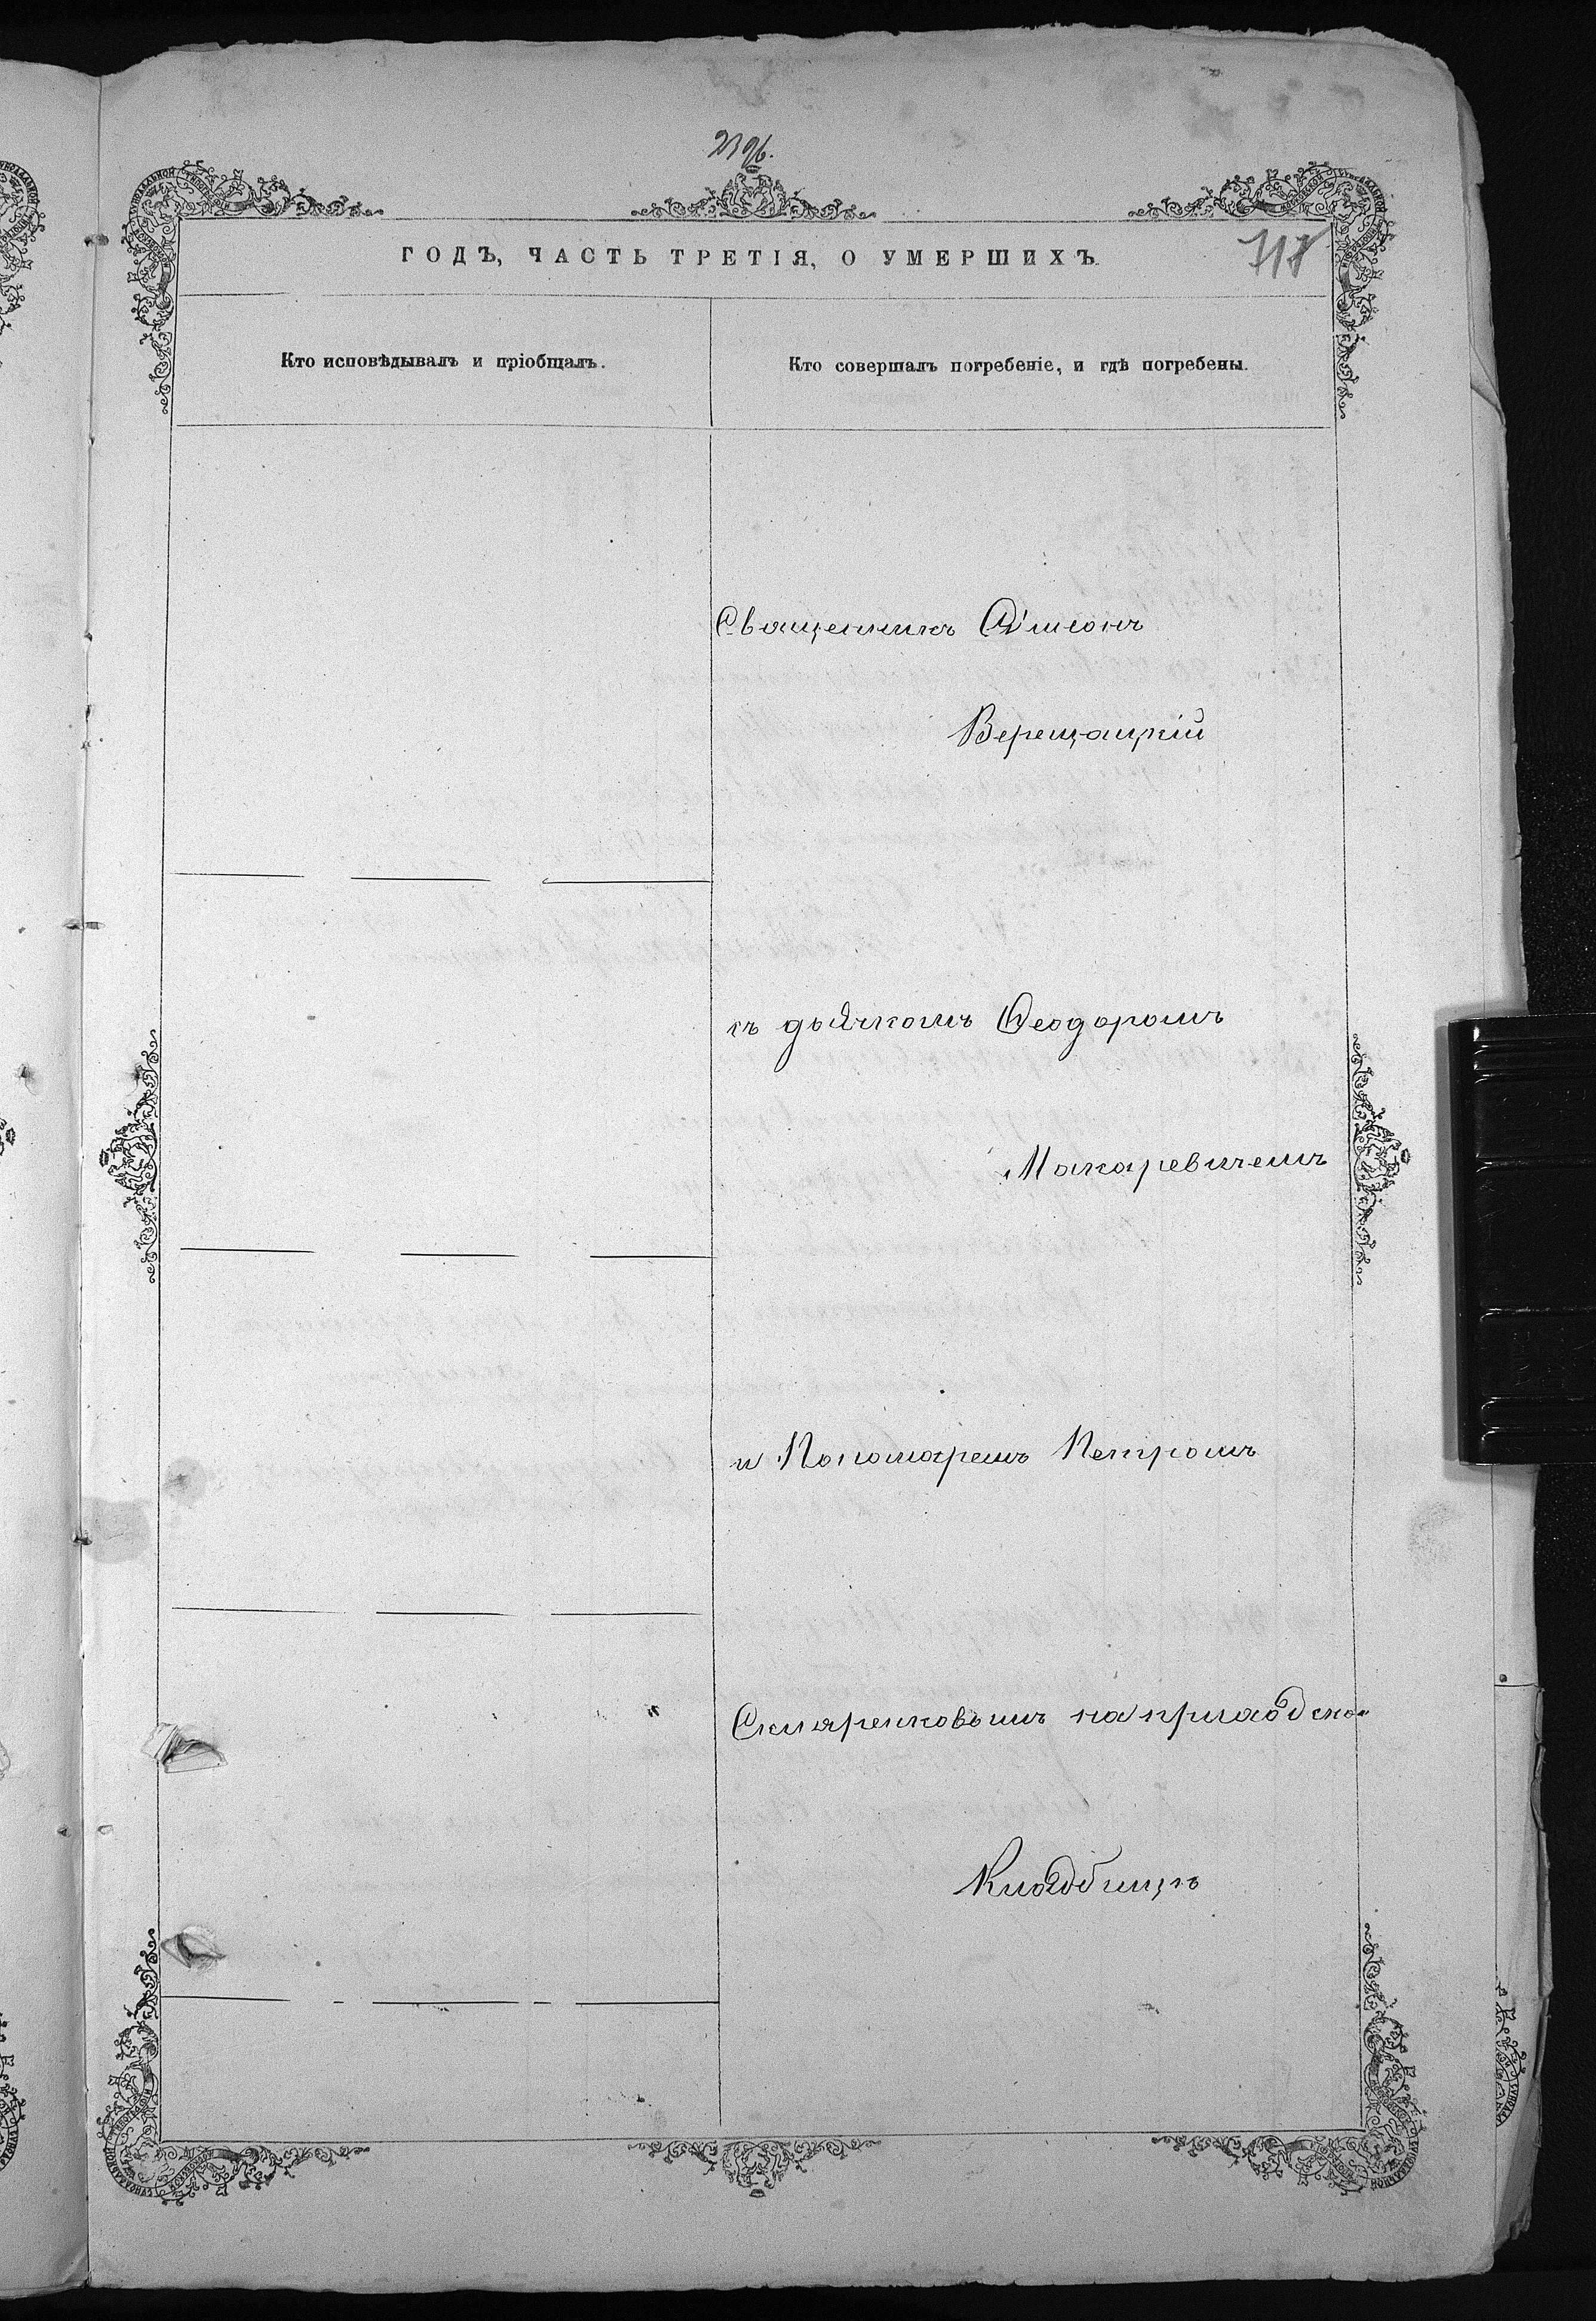 2396.
ГОДЪ, ЧАСТЬ ТРЕТІЯ, О УМЕРШИХЪ
717
Кто исповѣдывалъ и пріобщалъ.
Кто совершалъ погребеніе, и гдѣ погребены.
Священникъ Симеонъ
Верещацкій
съ дьячкомъ Ѳеодоромъ
Макаревичемъ
и Пономаремъ Петромъ
Скляренковымъ на приход ско-
Кладбищѣ